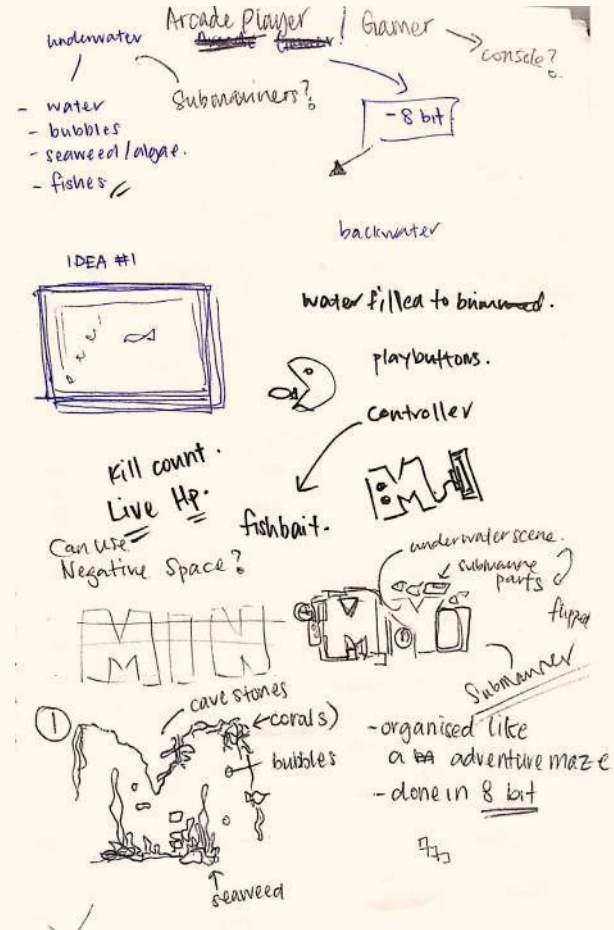 Arcade Player / Gamer
Arcade Gamer
console?
underwater
Submariners?
- water
- bubbles
- seaweed/algae.
- fishes
- 8 bit
backwater
IDEA #1
water filled to brimmed.
playbuttons.
controller
Kill count.
Live Hp.
fishbait.
Can use
Negative Space?
underwater scene.
submarine
parts
flipped
Submariner
cave stones
1
corals)
bubbles
seaweed
- organised like
a adventure maze
- done in 8 bit